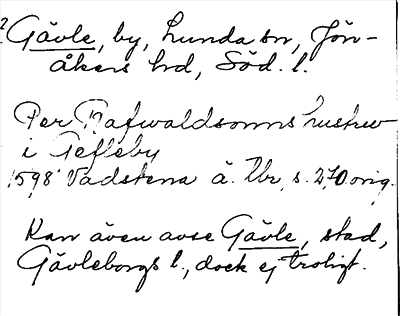 2. Gävle, by, Lunda sn, Jön-
åkers hd, Söd. l.
Per Rafwaldsonns hustrw
i Gefleby
1598 Vadstena ä. Tbr, s. 270 orig.
Kan även avse Gävle, stad,
Gävleborgs l., dock ej troligt.